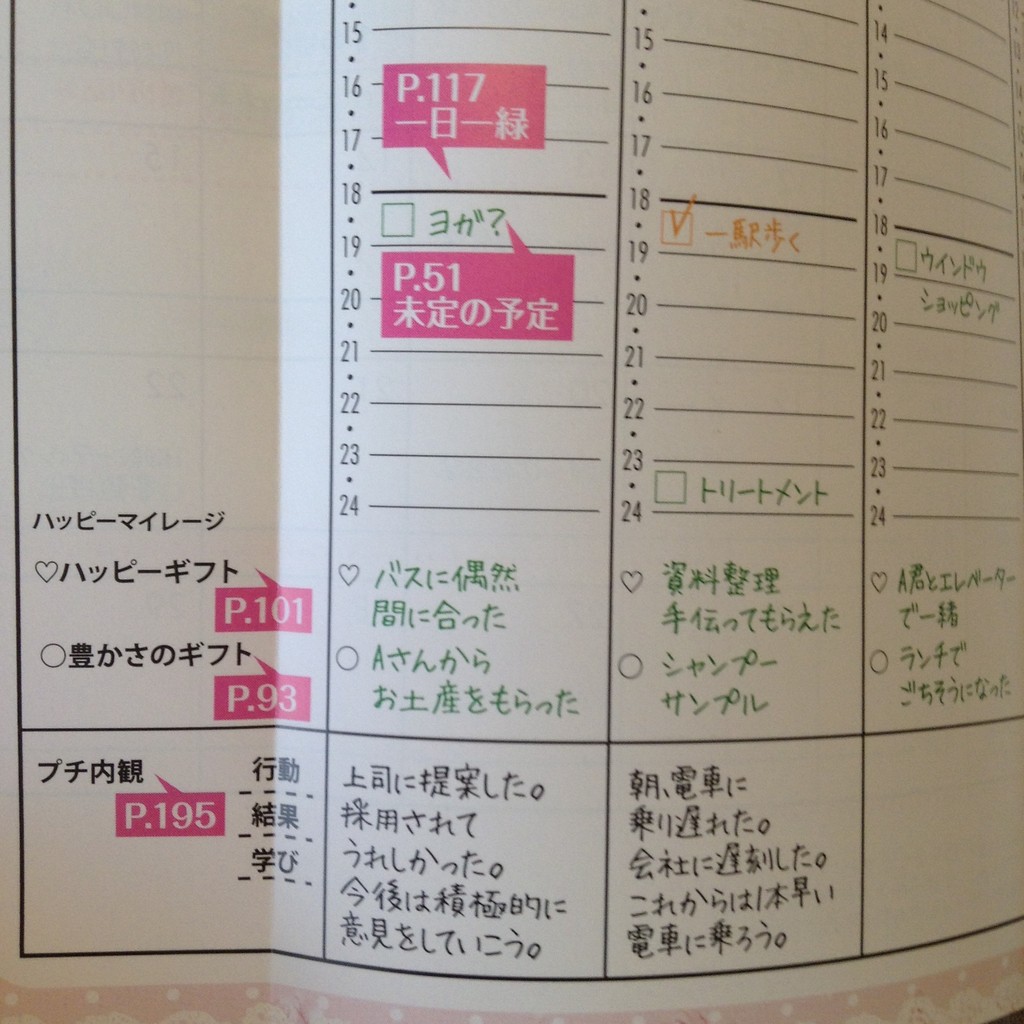 15
16
17
18
19
20
21
22
23
24
P.117
一日一緑
□ ヨガ?
P.51
未定の予定
15
16
17
18
19
20
21
22
23
24
☑ 一駅歩く
□ トリートメント
14
15
16
17
18
19
20
21
22
23
24
□ウインドウ
ショッピング
ハッピーマイレージ
♡ハッピーギフト
P.101
○豊かさのギフト
P.93
♡ バスに偶然
間に合った
○ Aさんから
お土産をもらった
♡ 資料整理
手伝ってもらえた
○ シャンプー
サンプル
♡ A君とエレベーター
で一緒
○ ランチで
ごちそうになった
プチ内観
P.195
行動
結果
学び
上司に提案した。
採用されて
うれしかった。
今後は積極的に
意見をしていこう。
朝、電車に
乗り遅れた。
会社に遅刻した。
これからは1本早い
電車に乗ろう。